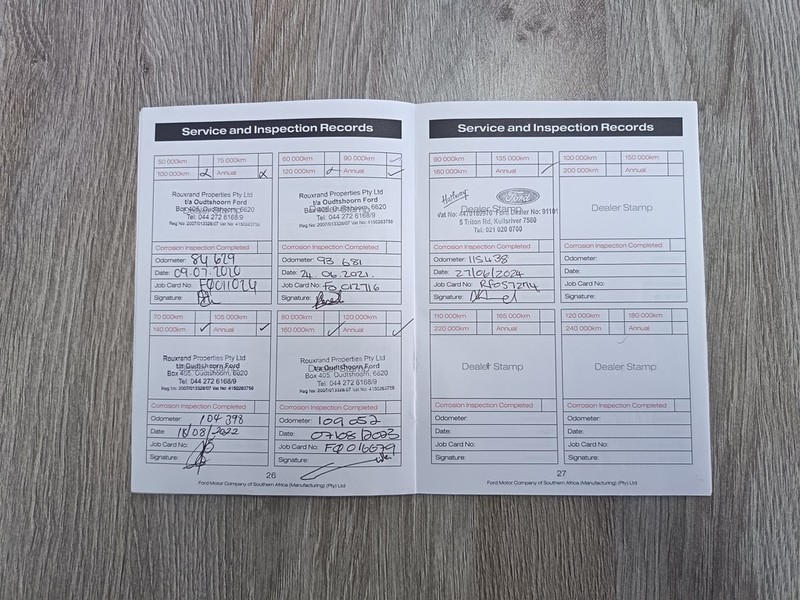 Service and Inspection Records
50 000km 75 000km
100 000km Annual
Rouxrand Properties Pty Ltd
t/a Oudtshoorn Ford
Box 405, Oudtshoorn, 6620
Tel: 044 272 6168/9
Reg No: 2007/013328/07 Vat No: 4150263756
Corrosion Inspection Completed
Odometer: 84 629
Date: 09.07.2020
Job Card No: FO011024
Signature:
60 000km 90 000km
120 000km Annual
Rouxrand Properties Pty Ltd
t/a Oudtshoorn Ford
Box 405, Oudtshoorn, 6620
Tel: 044 272 6168/9
Reg No: 2007/013328/07 Vat No: 4150263756
Corrosion Inspection Completed
Odometer: 93 681
Date: 24.06.2021.
Job Card No: FO 012716
Signature:
70 000km 105 000km
140 000km Annual
Rouxrand Properties Pty Ltd
t/a Oudtshoorn Ford
Box 405, Oudtshoorn, 6620
Tel: 044 272 6168/9
Reg No: 2007/013328/07 Vat No: 4150263756
Corrosion Inspection Completed
Odometer: 104 398
Date: 18/08/2022
Job Card No:
Signature:
80 000km 120 000km
160 000km Annual
Rouxrand Properties Pty Ltd
t/a Oudtshoorn Ford
Box 405, Oudtshoorn, 6620
Tel: 044 272 6168/9
Reg No: 2007/013328/07 Vat No: 4150263756
Corrosion Inspection Completed
Odometer: 109 052
Date: 07/08/2023
Job Card No: FO016679
Signature:
26
Ford Motor Company of Southern Africa (Manufacturing) (Pty) Ltd
Service and Inspection Records
90 000km 135 000km
180 000km Annual
Halfway Ford
Dealer Stamp
Vat No: 4470180970 Ford Dealer No: 91101
5 Triton Rd, Kuilsriver 7580
Tel: 021 020 0700
Corrosion Inspection Completed
Odometer: 115438
Date: 27/06/2024
Job Card No: RF057274
Signature:
100 000km 150 000km
200 000km Annual
Dealer Stamp
Corrosion Inspection Completed
Odometer:
Date:
Job Card No:
Signature:
110 000km 165 000km
220 000km Annual
Dealer Stamp
Corrosion Inspection Completed
Odometer:
Date:
Job Card No:
Signature:
120 000km 180 000km
240 000km Annual
Dealer Stamp
Corrosion Inspection Completed
Odometer:
Date:
Job Card No:
Signature:
27
Ford Motor Company of Southern Africa (Manufacturing) (Pty) Ltd